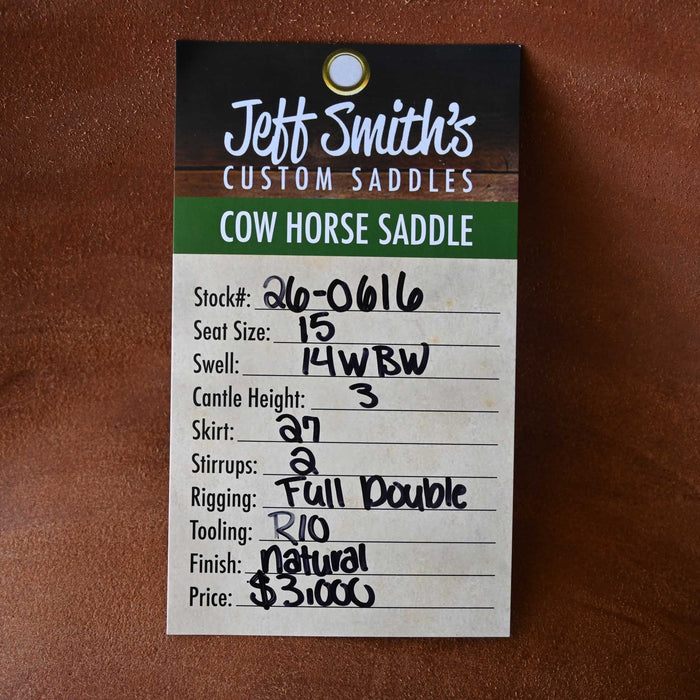 Jeff Smith's
CUSTOM SADDLES
COW HORSE SADDLE
Stock#: 26-0616
Seat Size: 15
Swell: 14W BW
Cantle Height: 3
Skirt: 27
Stirrups: 2
Rigging: Full Double
Tooling: R10
Finish: natural
Price: $3,000